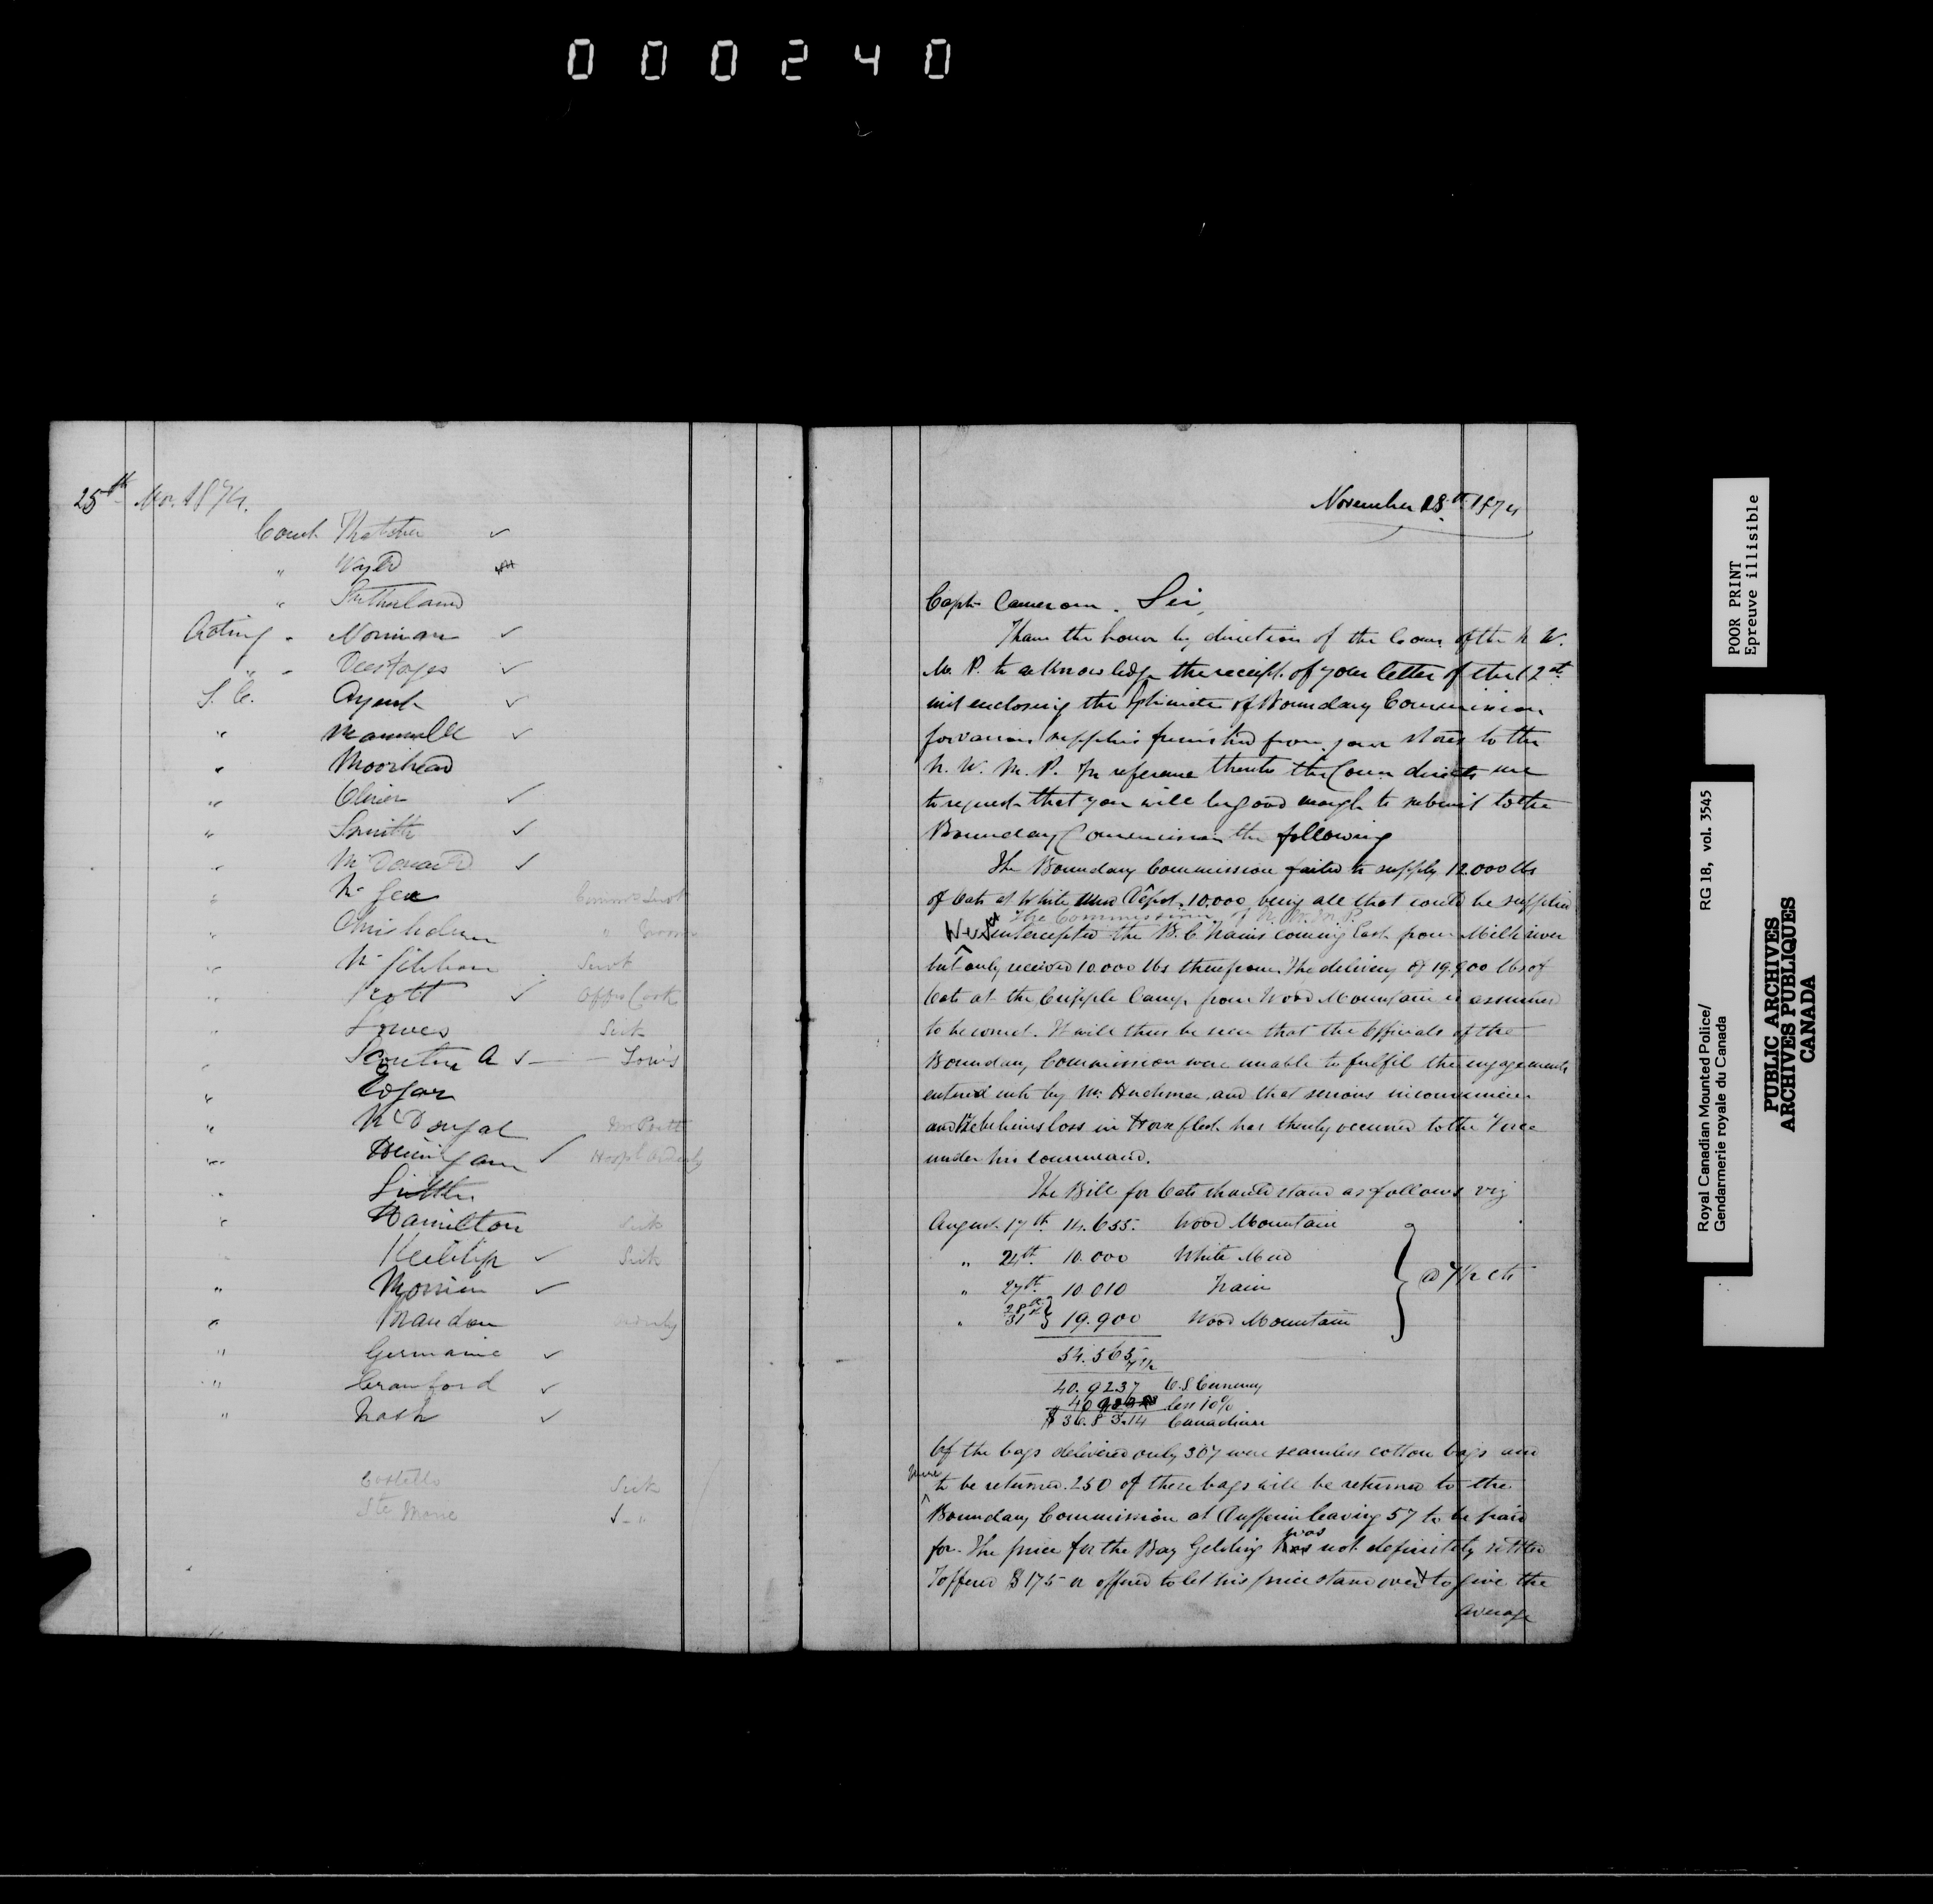 000240
25th Nov. 1874.
Const Thatcher ✓
" Wyld
" Sutherland
Acting " Norman ✓
" " ✓
S. C. ✓
" Maunsell ✓
" Moorhead
" ✓
" Smith ✓
" McDonald ✓
" McGee Servt
" Chisholm " Groom
" McGibbon Servt
" Trott ✓ Offrs Cook
" Lowes Sick
" A ✓
" Edgar
" McDougal
" ✓ Hospl Orderly
"
" Hamilton Sick
✓ Sick
" ✓
" Orderly
" Germaine ✓
" Crawford ✓
" Nash ✓
Costello Sick
Ste Marie ✓ "
November 28th 1874
Capt Cameron. Sir,
I have the honor by direction of the Comr of the N. W.
M. P. to acknowledge the receipt of your letter of the
inst enclosing the of Boundary Commission
for various supplies furnished from your stores to the
N. W. M. P. In reference thereto the Comr directs me
to request that you will be good enough to submit to the
Boundary Commission the following
The Boundary Commission failed to supply 12.000 lbs
of Oats at White Mud Depot, 10.000 being all that could be supplied
The Commissioner of N. W. M. P.
intercepted the B. C trains coming East from Milk river
but only received 10.000 lbs therefrom. The delivery of 19.900 lbs of
Oats at the Cripple Camp from Wood Mountain is assumed
to be correct. It will thus be seen that the Officials of the
Boundary Commission were unable to fulfil the engagements
entered into by Mr and that serious inconvenience
and loss in Horseflesh has thereby occurred to the Force
under his command.
The Bill for Oats should stand as follows viz
August 17th 14.655. Wood Mountain
" 24th. 10.000 White Mud
" 27th 10.010 Train
" 28th 31st } 19.900 Wood Mountain
} @ 7½ cts
54.565
7½
40.9237 U.S Currency
less 10%
$ 36.83.14 Canadian
Of the bags delivered only 307 were seamless cotton bags and
were to be returned. 250 of these bags will be returned to the
Boundary Commission at Dufferin leaving 57 to be paid
for. The price for the Bay Gelding was not definitely settled
I offered $175 or offered to let his price stand over to give the
average
POOR PRINT
Epreuve illisible
Royal Canadian Mounted Police/ RG 18, vol. 3545
Gendarmerie royale du Canada
PUBLIC ARCHIVES
ARCHIVES PUBLIQUES
CANADA